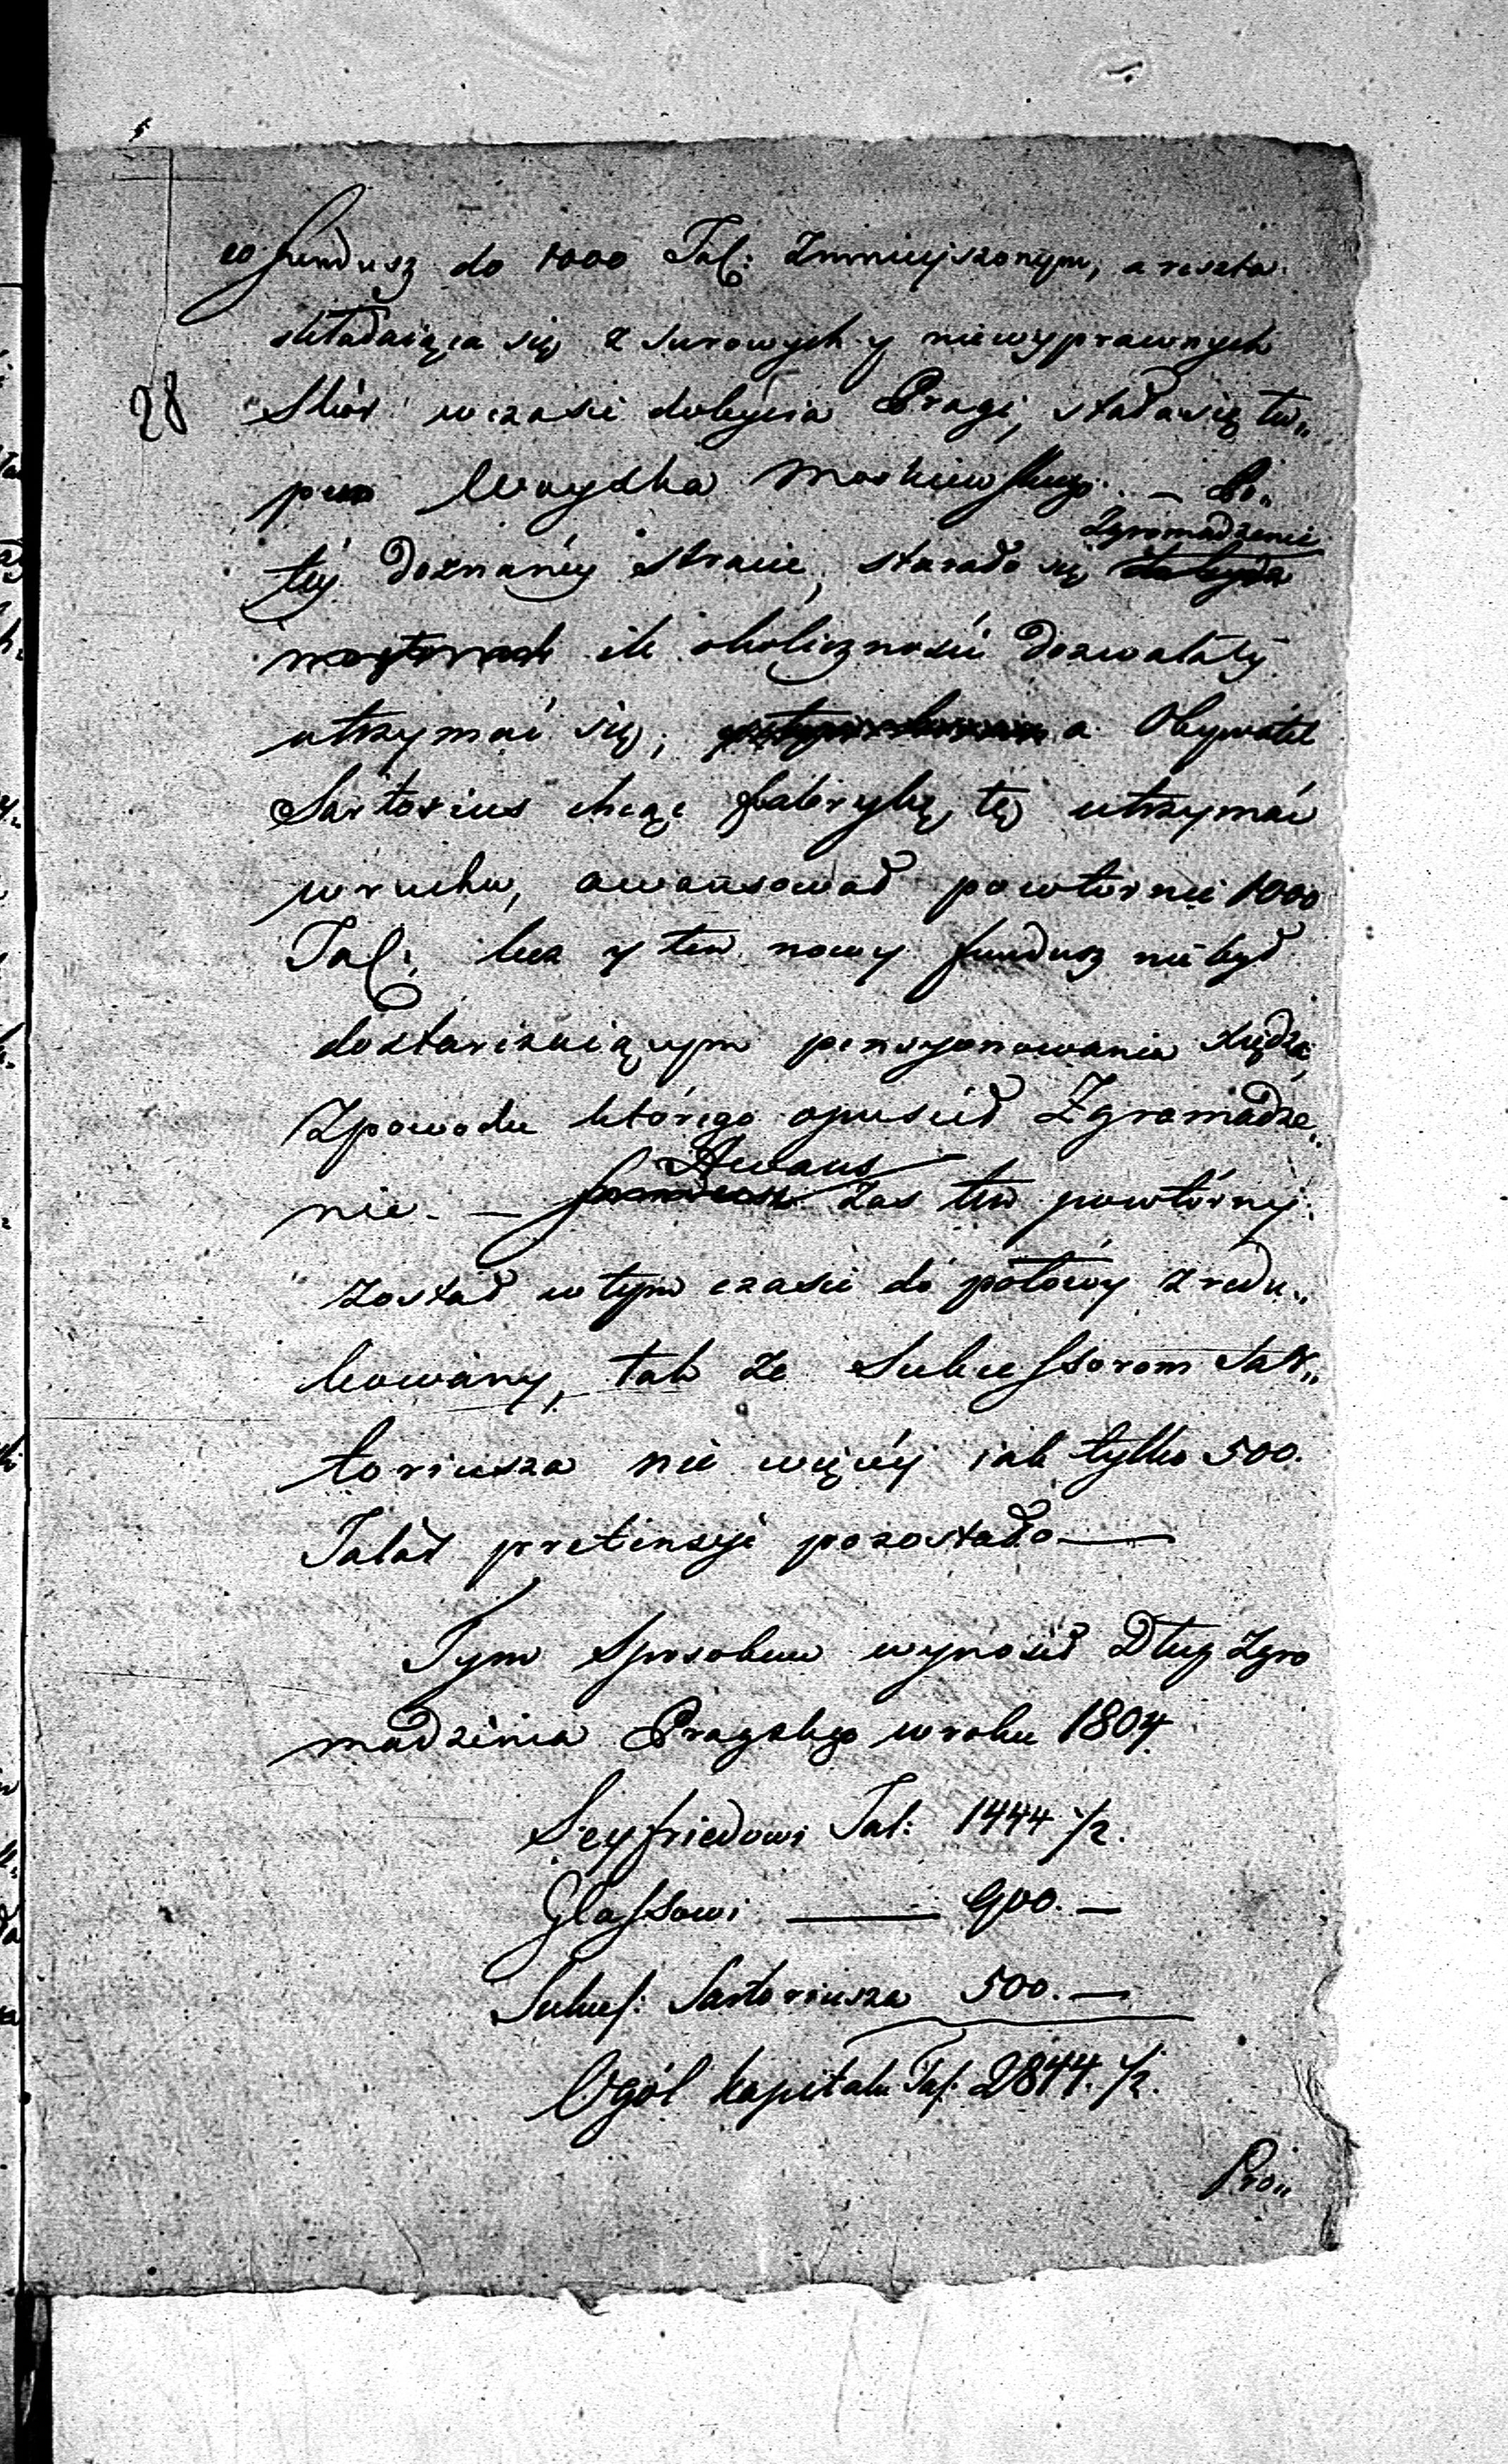 co fundusz do 1000 Tal: zmnieyszonym, a reszta
składaiąca się z surowych y niewyprawnych
28
Skór w czasie dobycia Pragi, stała się łu„
pem Woyska Moskiewskiego. — Po„
Zgromadzenie
téy doznanéy stracie, starało się
ile okoliczności dozwalały
utrzymać się, a Obywatel
Sartorius chcąc fabrykę tę utrzymać
w ruchu, awansował powtórnie 1000
Tal: lecz y ten nowy fundusz nie był
dostarczaiącym pensyonowania Xiędza,
Z powodu którego opuścił Zgromadze„
Awans
nie. — fundusz zas ten powtórny
został w tym czasie do połowy zredu„
kowany, tak że Sukcessorom Sar„
toriusza nie więcéy iak tylko 500.
Talar pretensyi pozostało —
Tym sposobem wynosił Dług Zgro
madzenia Pragskiego w roku 1804
Seyfriedowi Tal: 1444 1/2.
Glassowi — 900. —
Sukces: Sartoriusza 500. —
Ogół kapitału Tal: 2844. 1/2.
Pro„